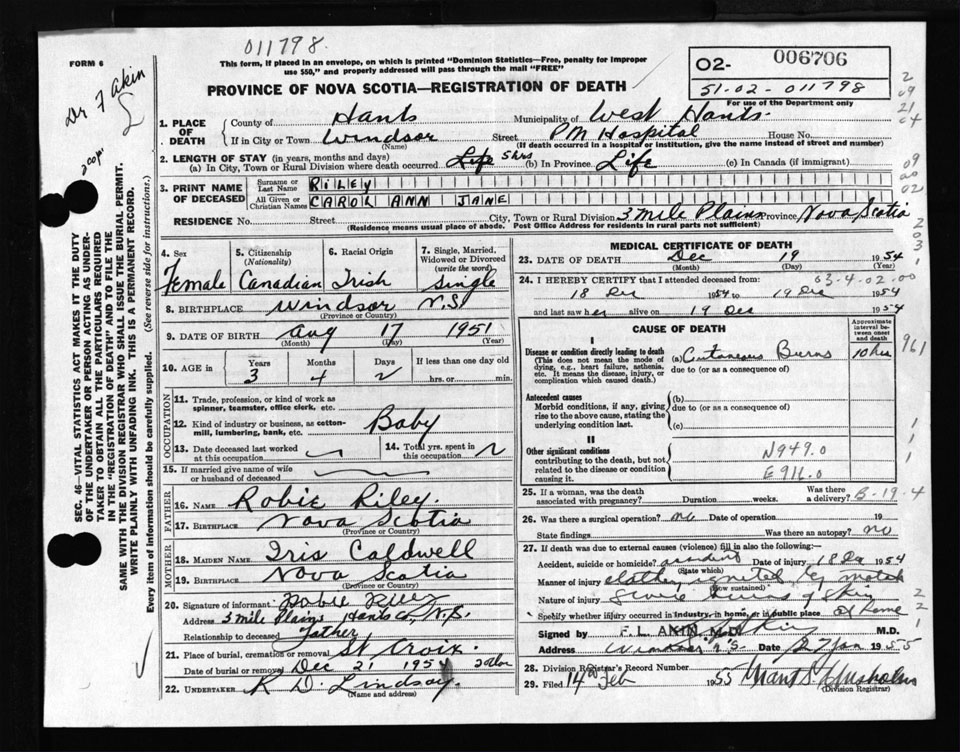 011798.
FORM 6
This form, if placed in an envelope, on which is printed "Dominion Statistics—Free, penalty for improper
use $50," and properly addressed will pass through the mail "FREE"
PROVINCE OF NOVA SCOTIA—REGISTRATION OF DEATH
02- 006706
51-02-011798
For use of the Department only
Dr F Akin
SEC. 46—VITAL STATISTICS ACT MAKES IT THE DUTY
OF THE UNDERTAKER OR PERSON ACTING AS UNDER-
TAKER TO OBTAIN ALL THE PARTICULARS REQUIRED
IN THE "REGISTRATION OF DEATH" AND TO FILE THE
SAME WITH THE DIVISION REGISTRAR WHO SHALL ISSUE THE BURIAL PERMIT.
WRITE PLAINLY WITH UNFADING INK. THIS IS A PERMANENT RECORD.
Every item of information should be carefully supplied. (See reverse side for instructions.)
1. PLACE OF DEATH
County of Hants Municipality of West Hants.
If in City or Town Windsor Street PM Hospital House No.
(Name) (If death occurred in a hospital or institution, give the name instead of street and number)
2. LENGTH OF STAY (in years, months and days)
(a) In City, Town or Rural Division where death occurred 5 hrs (b) In Province Life (c) In Canada (if immigrant)
3. PRINT NAME OF DECEASED
Surname or Last Name RILEY
All Given or Christian Names CAROL ANN JANE
RESIDENCE No. Street City, Town or Rural Division 3 Mile Plains Province Nova Scotia
(Residence means usual place of abode. Post Office Address for residents in rural parts not sufficient)
4. Sex Female
5. Citizenship (Nationality) Canadian
6. Racial Origin Irish
7. Single, Married, Widowed or Divorced (write the word) Single
8. BIRTHPLACE Windsor N.S.
(Province or Country)
9. DATE OF BIRTH Aug 17 1951
(Month) (Day) (Year)
10. AGE in Years 3 Months 4 Days 2 If less than one day old hrs. or min.
OCCUPATION
11. Trade, profession, or kind of work as spinner, teamster, office clerk, etc.
12. Kind of industry or business, as cotton-mill, lumbering, bank, etc. Baby
13. Date deceased last worked at this occupation
14. Total yrs. spent in this occupation
15. If married give name of wife or husband of deceased
FATHER
16. Name Robie Riley.
17. Birthplace Nova Scotia
(Province or Country)
MOTHER
18. Maiden Name Iris Caldwell
19. Birthplace Nova Scotia
(Province or Country)
20. Signature of informant Robie Riley
Address 3 Mile Plains Hants Co., N.S.
Relationship to deceased Father
21. Place of burial, cremation or removal St Croix.
Date of burial or removal Dec 21 1954
22. Undertaker R D. Lindsay.
(Name and address)
MEDICAL CERTIFICATE OF DEATH
23. DATE OF DEATH Dec 19 1954
(Month) (Day) (Year)
63-4-02-00
24. I HEREBY CERTIFY that I attended deceased from:
18 Dec 1954 to 19 Dec 1954
and last saw her alive on 19 Dec 1954
CAUSE OF DEATH
Approximate interval between onset and death
I
Disease or condition directly leading to death
(This does not mean the mode of dying, e.g., heart failure, asthenia, etc. It means the disease, injury, or complication which caused death.)
(a) Cutaneous Burns 10 hrs
due to (or as a consequence of)
Antecedent causes
Morbid conditions, if any, giving rise to the above cause, stating the underlying condition last.
(b)
due to (or as a consequence of)
(c)
II
Other significant conditions
contributing to the death, but not related to the disease or condition causing it.
N949.0
E916.0
25. If a woman, was the death associated with pregnancy? Duration weeks. Was there a delivery? B-19-4
26. Was there a surgical operation? no Date of operation 19
State findings Was there an autopsy? no
27. If death was due to external causes (violence) fill in also the following:
Accident, suicide or homicide? accident Date of injury 18 Dec 1954
(State which)
Manner of injury clothes ignited by match
(How sustained)
Nature of injury Severe burns of skin
Specify whether injury occurred in industry, in home, or in public place at home
Signed by F. L. AKIN, M.D. M.D.
Address Windsor N.S. Date 27 Jan 1955
28. Division Registrar's Record Number
29. Filed 14 Feb 1955
(Division Registrar)